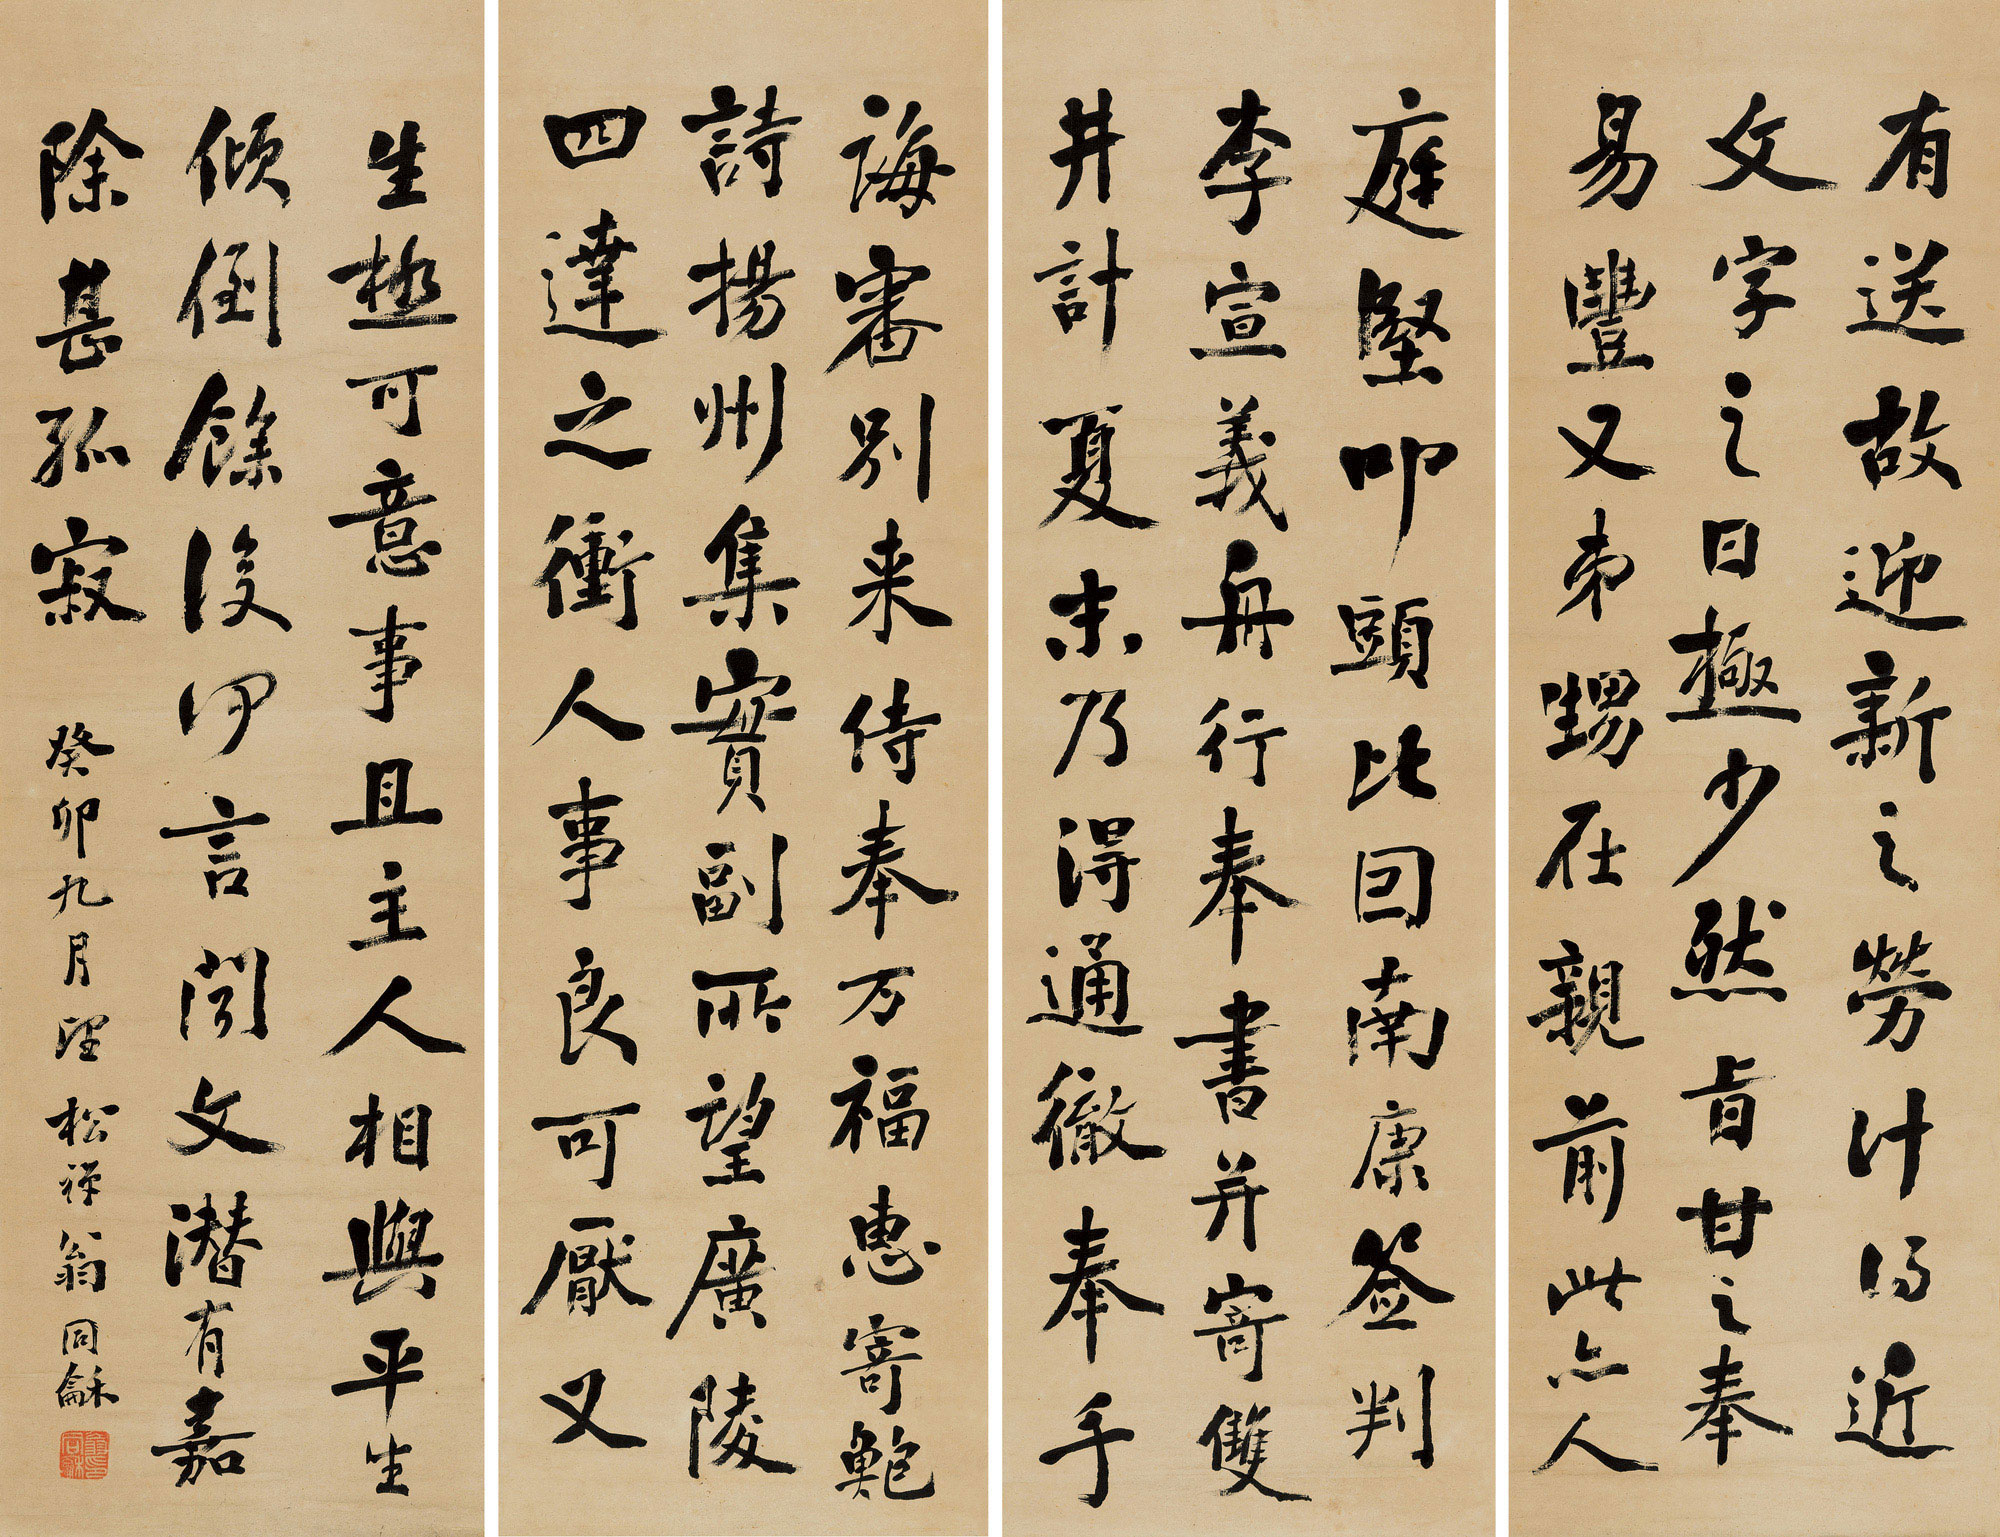 有送故迎新之勞計得近
文字之日極少然旨甘之奉
易豐又弟甥在親前此亦人
生極可意事且主人相與平生
傾倒餘復何言閤文潛有嘉
除甚孤寂
庭堅叩頭比因南康簽判
李宣義舟行奉書并寄雙
井計夏末乃得通徹奉手
誨審別来侍奉万福惠寄鮑
詩揚州集實副所望廣陵
四達之衝人事良可厭又
癸卯九月望 松禪翁同龢